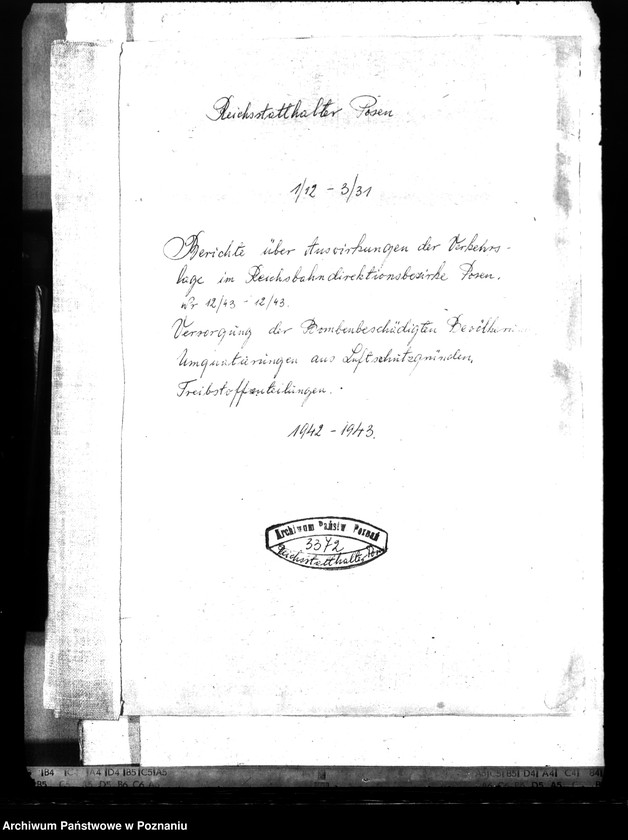 Reichsstatthalter Posen
1/12 - 3/31
Berichte über Auswirkungen der Verkehrs-
lage im Reichsbahndirektionsbezirke Posen.
Nr 12/43 - 12/43.
Versorgung der Bombenbeschädigten
Umquartierungen aus Luftschutzgründen,
Treibstoffzuteilungen.
1942 - 1943.
Archiwum Państw Poznań
3372
Reichsstatthalter
B4 A4 D4 B5 C5 A5
C5 B5 D4 A4 C4 B4
Archiwum Państwowe w Poznaniu